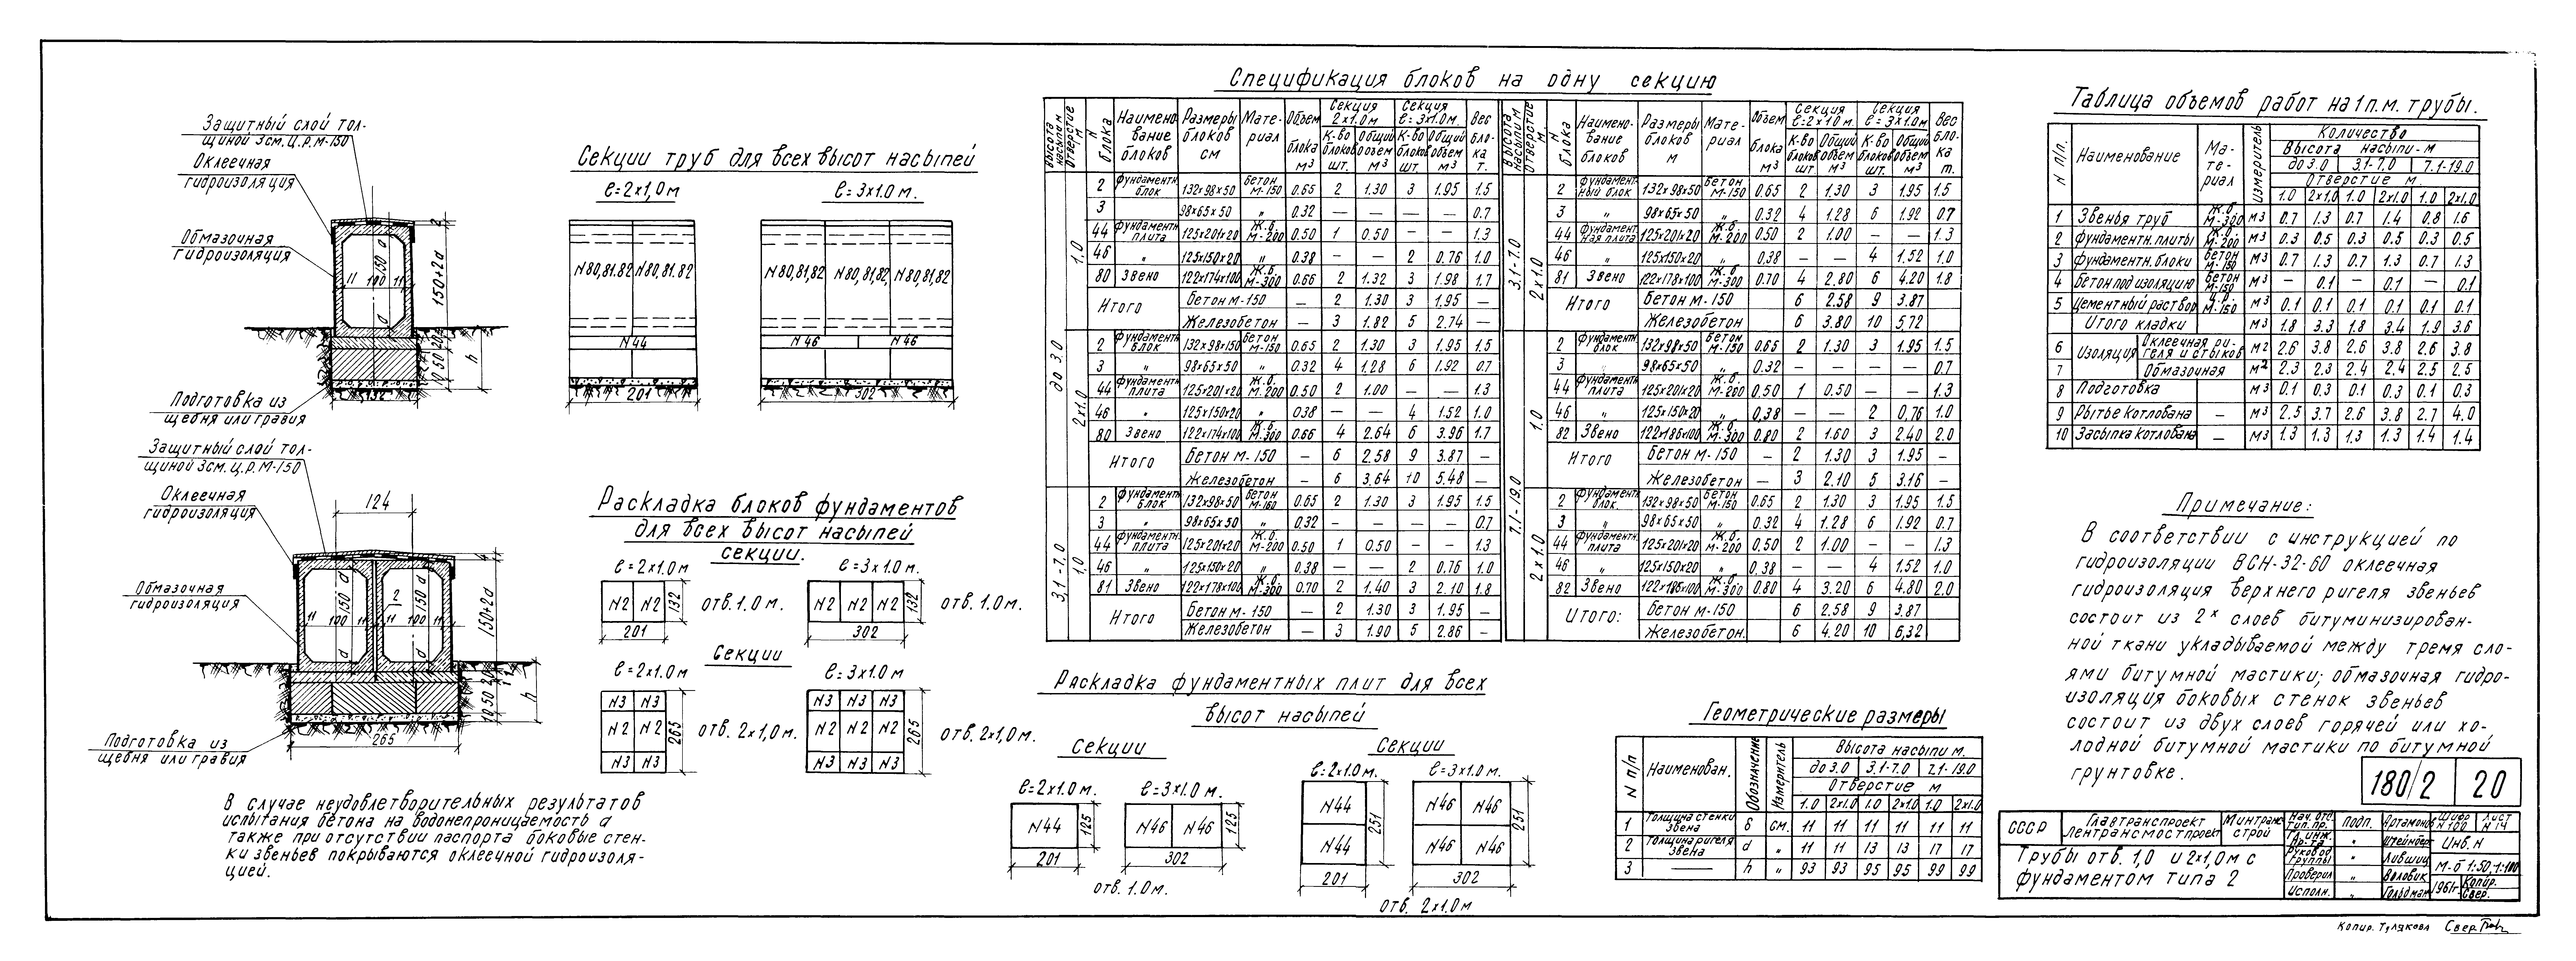 Защитный слой тол-
щиной 3см. ц.р.М-150
Оклеечная
гидроизоляция
Обмазочная
гидроизоляция
11 100 11
150
d
d
2
150+2d
10 50 20
h
132
Подготовка из
щебня или гравия
Защитный слой тол-
щиной 3см. ц.р.М-150
Оклеечная
гидроизоляция
124
Обмазочная
гидроизоляция
11 100 11
2
11 100 11
150+2d
h
265
Подготовка из
щебня или гравия
В случае неудовлетворительных результатов
испытания бетона на водонепроницаемость а
также при отсутствии паспорта боковые стен-
ки звеньев покрываются оклеечной гидроизоля-
цией.
Секции труб для всех высот насыпей
ℓ=2х1,0м
ℓ=3х1.0 м.
N80,81.82 N80,81.82
N80,81,82 N80,81,82, N80,81,82
N44
N46 N46
201
302
Раскладка блоков фундаментов
для всех высот насыпей
секции.
ℓ=2х1.0м
ℓ=3х1.0м.
N2 N2 132 отв.1.0м.
N2 N2 N2 132 отв. 1.0м.
201
302
Секции
ℓ=2х1.0м
ℓ=3х1.0м
N3 N3
N2 N2
N3 N3
265
отв. 2х1,0м.
N3 N3 N3
N2 N2 N2
N3 N3 N3
265
отв. 2х1,0м.
Спецификация блоков на одну секцию
Высота насыпи м
Отверстие м
N блока
Наимено-
вание
блоков
Размеры
блоков
см
Мате-
риал
Объем
блока
м³
Секция
2х1.0м
К-во блоков шт.
Общий объем м³
Секция
ℓ=3х1.0м.
К-во блоков шт.
Общий объем м³
Вес бло-
ка
т.
до 3.0
1,0
2 Фундаментн. блок 132х98х50 бетон М-150 0.65 2 1.30 3 1.95 1.5
3 98х65х50 „ 0.32 — — — — 0.7
44 Фундаментн. плита 125х201х20 Ж.б М-200 0.50 1 0.50 — — 1.3
46 „ 125х150х20 „ 0.38 — — 2 0.76 1.0
80 Звено 122х174х100 Ж.б М-300 0.66 2 1.32 3 1.98 1.7
Итого бетон М-150 — 2 1.30 3 1.95 —
Железобетон — 3 1.82 5 2.74 —
2х1.0
2 Фундаментн. блок 132х98х150 бетон М-150 0.65 2 1.30 3 1.95 1.5
3 „ 98х65х50 „ 0.32 4 1.28 6 1.92 0.7
44 Фундаментн. плита 125х201х20 Ж.б. М-200 0.50 2 1.00 — — 1.3
46 „ 125х150х20 „ 038 — — 4 1.52 1.0
80 Звено 122х174х100 Ж.б. М-300 0.66 4 2.64 6 3.96 1.7
Итого бетон М-150 — 6 2.58 9 3.87 —
Железобетон — 6 3.64 10 5.48 —
3,1-7.0
1,0
2 Фундаментн. блок 132х98х50 бетон М-160 0.65 2 1.30 3 1.95 1.5
3 „ 98х65х50 „ 0.32 — — — — 0.7
44 Фундаментн. плита 125х201х20 Ж.б. М-200 0.50 1 0.50 — — 1.3
46 „ 125х150х20 „ 0.38 — — 2 0.76 1.0
81 Звено 122х178х100 Ж.б. М-300 0.70 2 1.40 3 2.10 1.8
Итого бетон М-150 — 2 1.30 3 1.95 —
Железобетон — 3 1.90 5 2.86 —
Высота насыпи М
Отверстие м.
N блока
Наимено-
вание
блоков
Размеры
блоков
м
Мате-
риал
Объем
блока
м³
Секция
ℓ=2х1.0м.
К-во блоков шт.
Общий объем м³
Секция
ℓ=3х1.0м
К-во блоков шт.
Общий объем м³
Вес
бло-
ка
т.
3.1-7.0
2х1.0
2 Фундамент-
ный блок 132х98х50 бетон М-150 0.65 2 1.30 3 1.95 1.5
3 „ 98х65х50 „ 0.32 4 1.28 6 1.92 0.7
44 Фундамент-
ная плита 125х201х20 Ж.б. М-200 0.50 2 1.00 — — 1.3
46 „ 125х150х20 „ 0.38 — — 4 1.52 1.0
81 Звено 122х178х100 Ж.б. М-300 0.70 4 2.80 6 4.20 1.8
Итого бетон М-150 6 2.58 9 3.87
Железобетон 6 3.80 10 5,72
7.1-19.0
1.0
2 Фундаментн. блок 132х98х50 бетон М-150 0.65 2 1.30 3 1.95 1.5
3 „ 98х65х50 „ 0.32 — — — — 0.7
44 Фундаментн. плита 125х201х20 Ж.б. М-200 0.50 1 0.50 — — 1.3
46 „ 125х150х20 „ 0,38 — — 2 0,76 1.0
82 Звено 122х186х100 Ж.б. М-300 0.80 2 1.60 3 2.40 2.0
Итого бетон М-150 — 2 1.30 3 1.95 —
Железобетон — 3 2.10 5 3.16 —
2х1.0
2 Фундаментн. блок. 132х98х50 бетон М-150 0.65 2 1.30 3 1.95 1.5
3 „ 98х65х50 „ 0.32 4 1.28 6 1.92 0.7
44 Фундаментн. плита 125х201х20 Ж.б. М-200 0.50 2 1.00 — — 1.3
46 „ 125х150х20 „ 0.38 — — 4 1.52 1.0
82 Звено 122х186х100 Ж.б. М-300 0.80 4 3.20 6 4.80 2.0
Итого: бетон М-150 6 2.58 9 3.87
Железобетон. 6 4.20 10 6,32
Раскладка фундаментных плит для всех
высот насыпей
Секции
ℓ=2х1.0м.
ℓ=3х1.0м.
N44 125
N46 N46 125
201
302
отв. 1.0м.
Секции
ℓ=2х1.0м.
ℓ=3х1.0м.
N44
N44
251
N46 N46
N46 N46
251
201
302
отв. 2х1.0м
Геометрические размеры
N п/п
Наименован.
Обозначение
Измеритель
Высота насыпи м.
до 3.0 3,1-7.0 7.1-19.0
Отверстие м
1.0 2х1.0 1.0 2х1.0 1.0 2х1.0
1 Толщина стенки звена б см. 11 11 11 11 11 11
2 Толщина ригеля звена d „ 11 11 13 13 17 17
3 —— h „ 93 93 95 95 99 99
Таблица объемов работ на 1 п.м. трубы.
N п/п.
Наименование
Ма-
те-
риал
Измеритель
Количество
Высота насыпи-м
до 3.0 3.1-7,0 7.1-19.0
Отверстие м
1.0 2х1,0 1.0 2х1.0 1.0 2х1.0
1 Звенья труб Ж.б. М-300 м3 0.7 1.3 0.7 1.4 0.8 1.6
2 Фундаментн. плиты Ж.б. М-200 м3 0.3 0.5 0.3 0.5 0.3 0.5
3 Фундаментн. блоки бетон М-150 м3 0.7 1.3 0.7 1.3 0.7 1.3
4 Бетон под изоляцию бетон М-150 м3 — 0.1 — 0.1 — 0.1
5 Цементный раствор ц.р. М-150 м3 0.1 0.1 0.1 0.1 0.1 0.1
Итого кладки м3 1.8 3.3 1.8 3.4 1.9 3.6
6 Изоляция Оклеечная ри-
геля и стыков м2 2.6 3.8 2.6 3.8 2.6 3.8
7 Обмазочная м2 2.3 2.3 2.4 2.4 2.5 2.5
8 Подготовка м3 0.1 0.3 0.1 0.3 0.1 0.3
9 Рытье котлована — м3 2.5 3.7 2.6 3.8 2.7 4.0
10 Засыпка котлована — м3 1.3 1.3 1,3 1.3 1.4 1.4
Примечание:
В соответствии с инструкцией по
гидроизоляции ВСН-32-60 оклеечная
гидроизоляция верхнего ригеля звеньев
состоит из 2х слоев битуминизирован-
ной ткани укладываемой между тремя сло-
ями битумной мастики; обмазочная гидро-
изоляция боковых стенок звеньев
состоит из двух слоев горячей или хо-
лодной битумной мастики по битумной
грунтовке.
180/2 20
СССР
Главтранспроект
Лентрансмостпроект
Минтранс
строй
Трубы отв. 1,0 и 2х1,0м с
фундаментом типа 2
Нач. отд. тип. пр. Подп. Артамонов
Гл. инж. пр-та „ Штейнберг
Руковод. группы „ Лившиц
Проверил „ Воловик
Исполн. „ Гольдман
Шифр N 180
Лист N 14
Инв. N
М-б 1:50, 1:100
1961г.
Копир.
Свер.
Копир. Тулякова Свер.